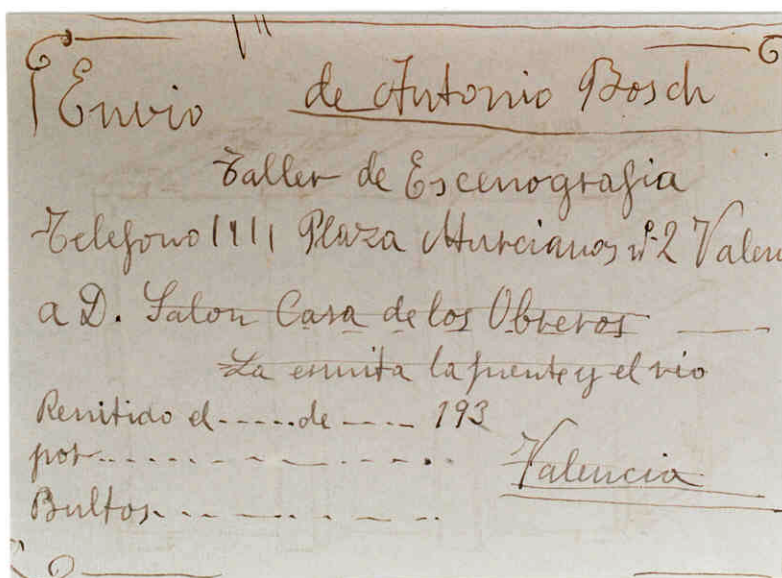 Envio de Antonio Bosch
Taller de Escenografia
Telefono 1911 Plaza Murcianos nº 2 Valen
a D. Salon Casa de los Obreros
La ermita la fuente y el rio
Remitido el ..... de ..... 193
por ..........
Valencia
Bultos ..........